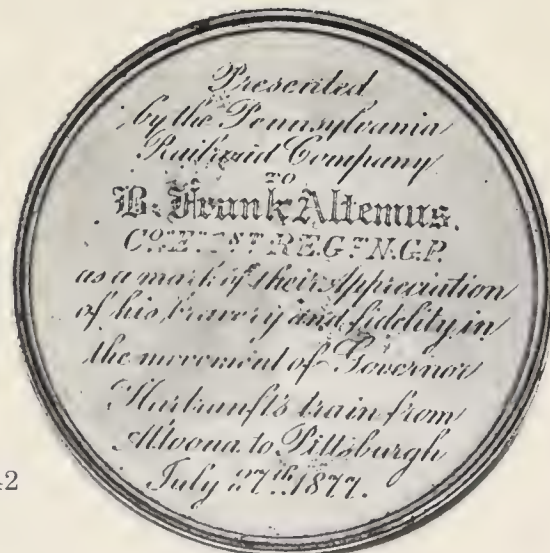 Presented
by the Pennsylvania
Railroad Company
TO
B. Frank Altemus.
REGT N.G.P.
as a mark of their Appreciation
of his bravery and fidelity in
the movement of Governor
Hartranft's train from
Altoona to Pittsburgh
July 27th 1877.